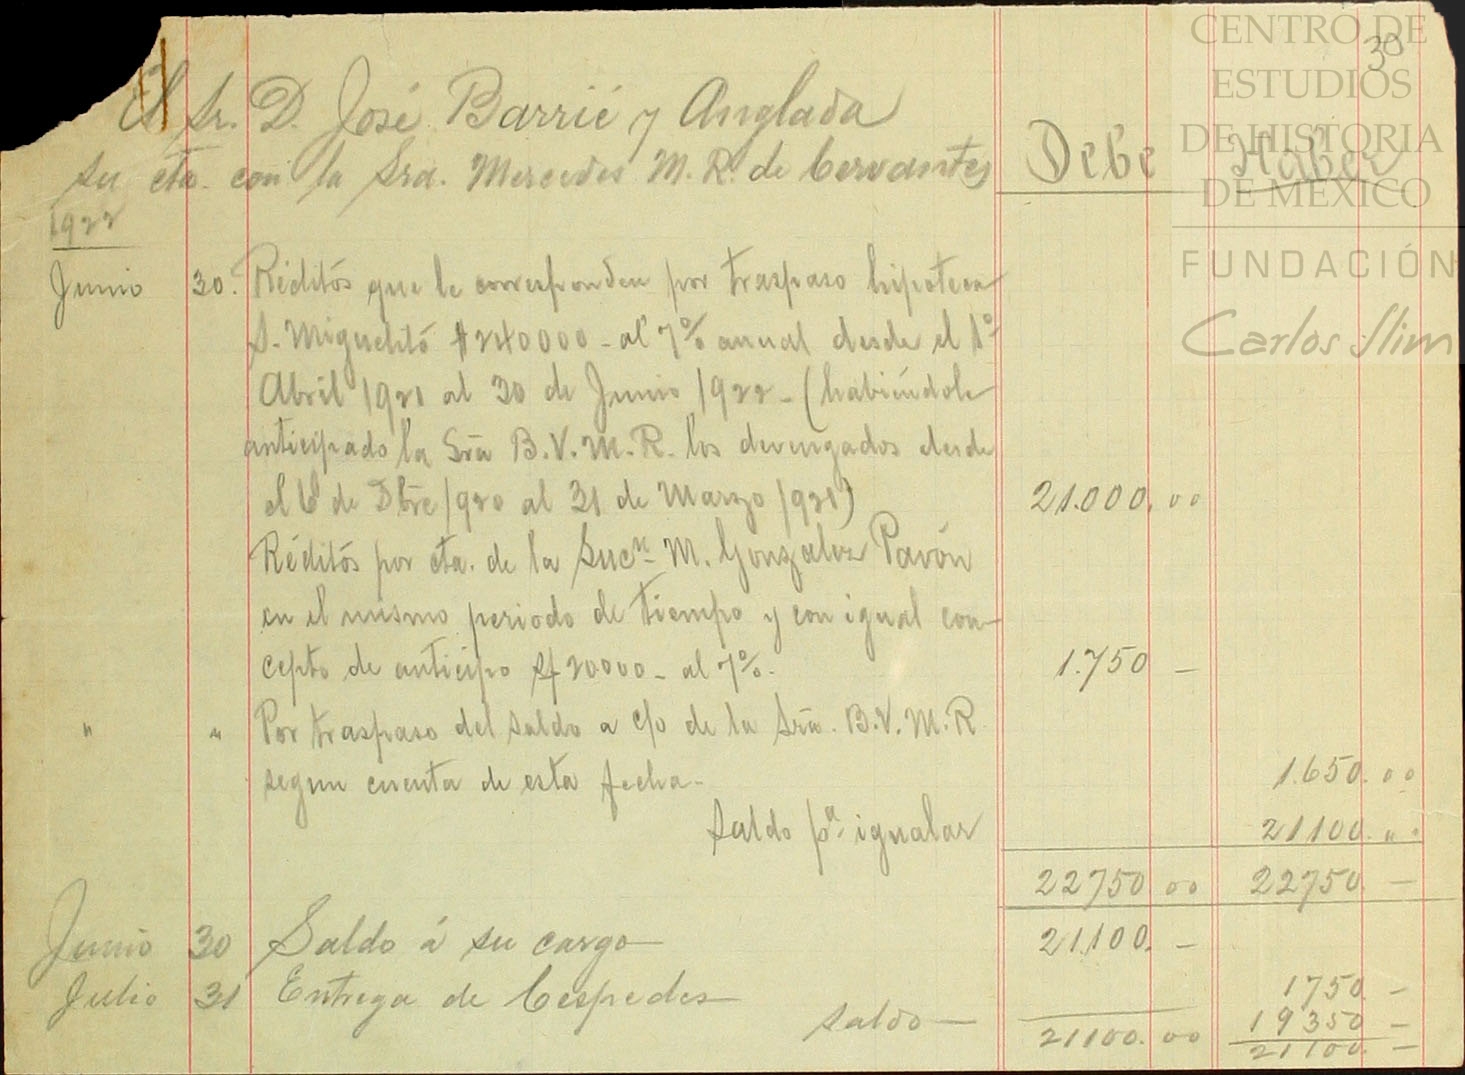 CENTRO DE
ESTUDIOS
DE HISTORIA
DE MÉXICO
FUNDACIÓN
Carlos Slim
30
El Sr. D. José Barrié y Anglada
su cta. con la Sra. Mercedes M. R. de Cervantes Debe Haber
1922
Junio 30. Réditos que le corresponden por traspaso hipoteca
S. Miguelito $240000 - al 7% anual desde el 1º
Abril 1921 al 30 de Junio 1922 - (habiéndole
anticipado la Sra B.V.M.R. los devengados desde
el de Dbre 1920 al 31 de Marzo 1921) 21.000.00
Réditos por cta. de la Sucn. M. Gonzalez Pavón
en el mismo periodo de tiempo y con igual con-
cepto de anticipo $20000 - al 7%. 1.750 -
" " Por traspaso del saldo a c/o de la Sra. B.V.M.R.
segun cuenta de esta fecha - 1.650.00
Saldo pa. igualar 21100. "
22750 00 22750. -
Junio 30 Saldo á su cargo 21.100. -
Julio 31 Entrega de Cespedes 1750. -
saldo 19350 -
21100.00 21100. -